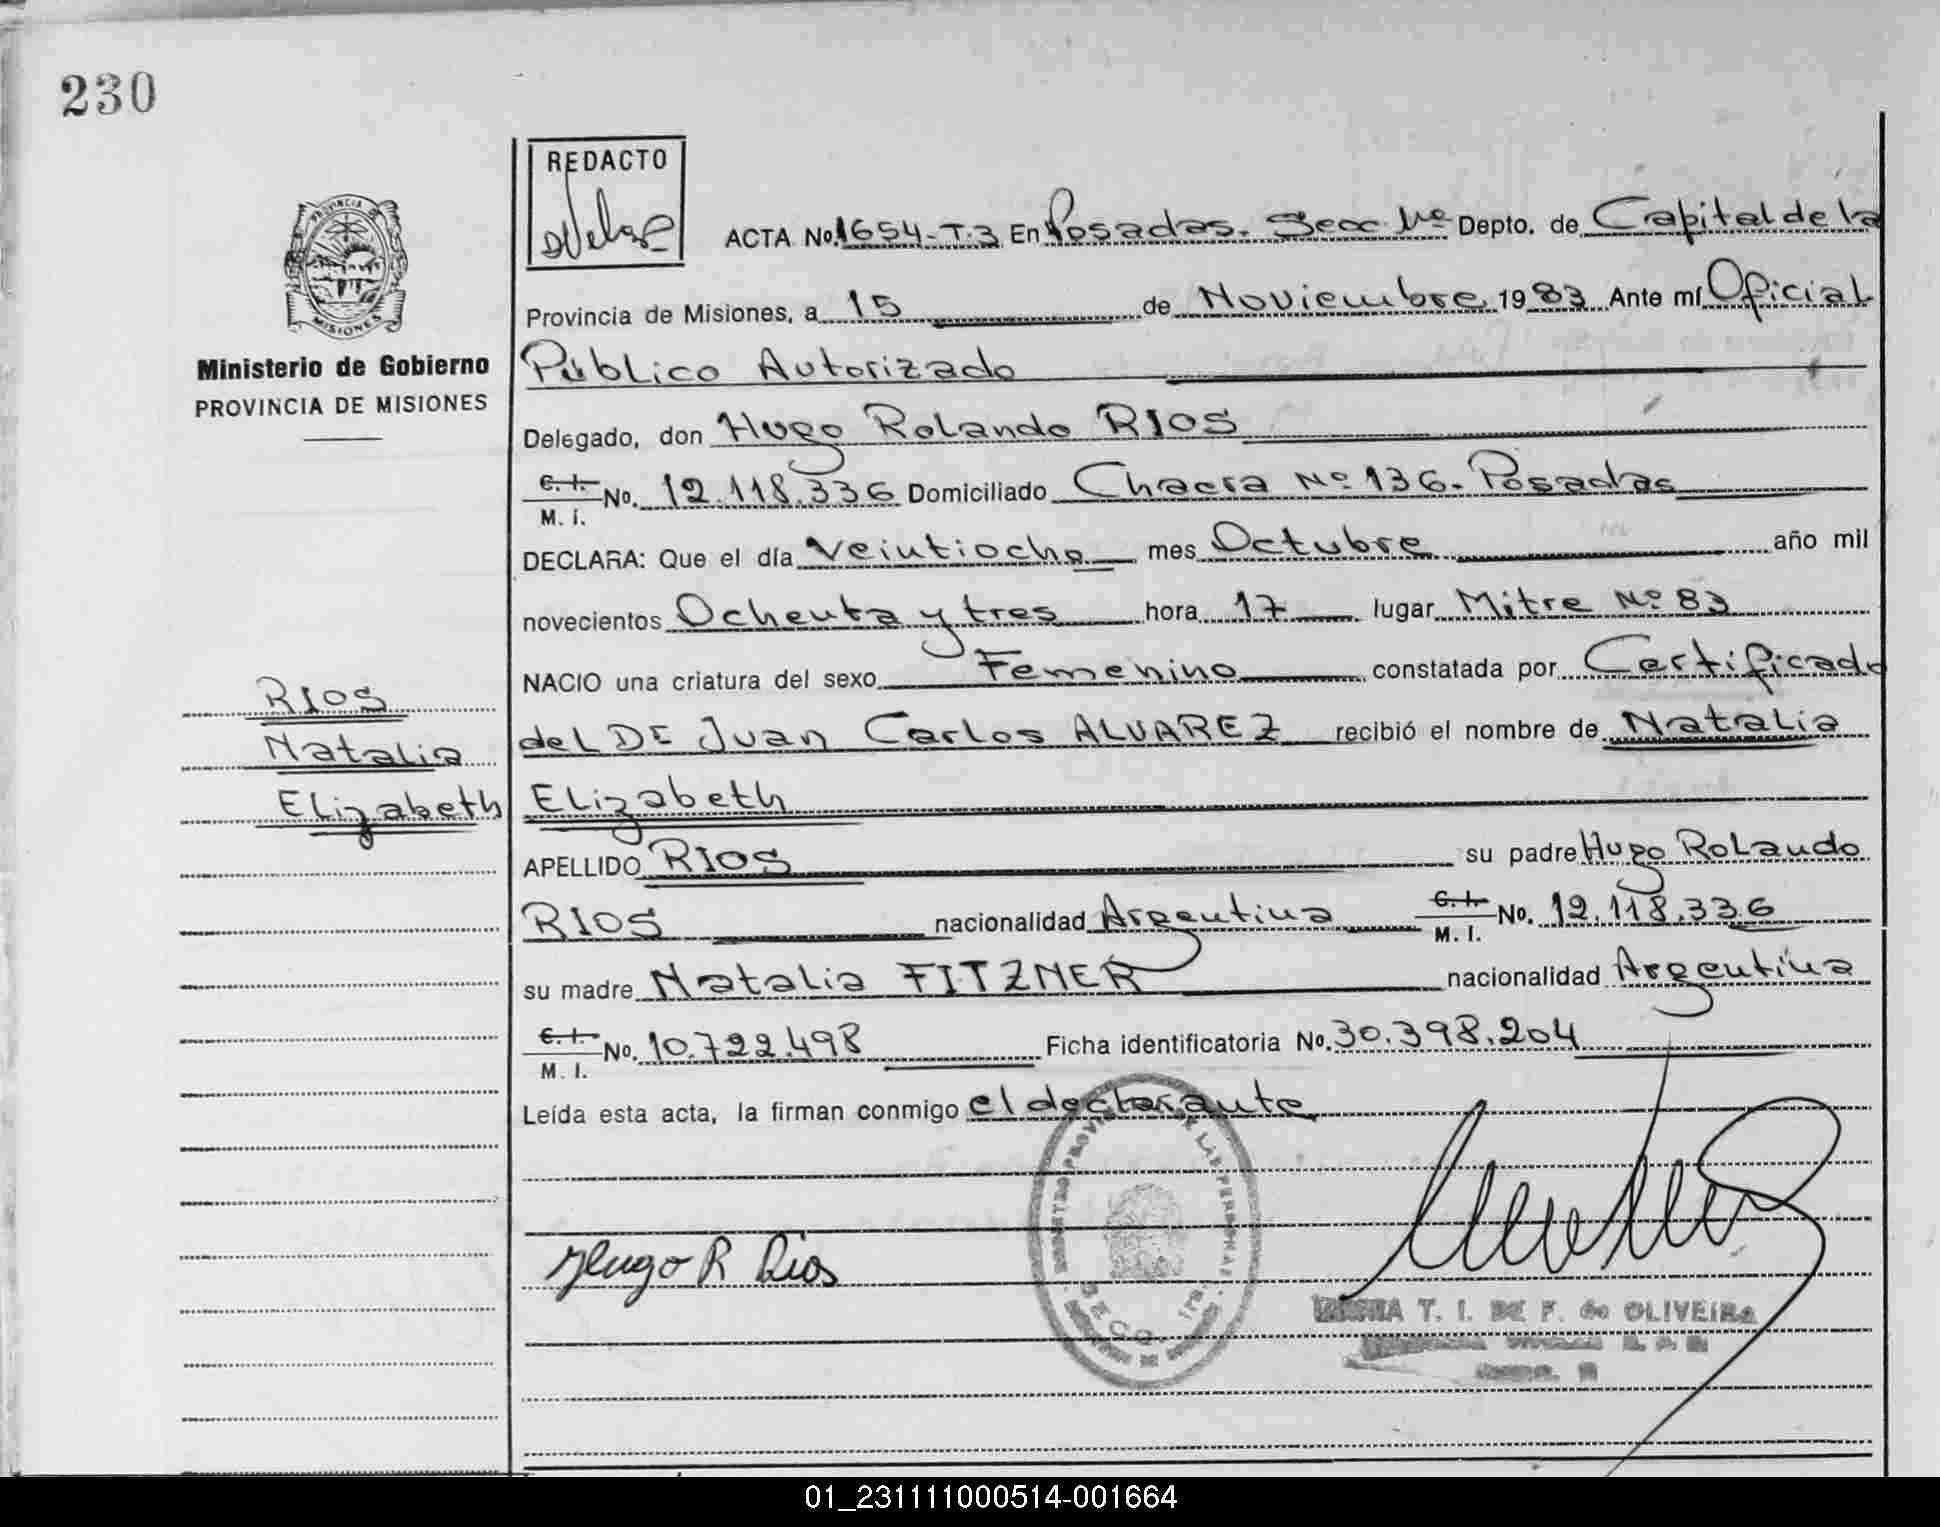 230
REDACTO
PROVINCIA DE
MISIONES
ACTA No. 1654-T.3 En Posadas. Secc 1ra Depto. de Capital de la
Provincia de Misiones, a 15 de Noviembre 1983 Ante mí Oficial
Ministerio de Gobierno
PROVINCIA DE MISIONES
Público Autorizado
Delegado, don Hugo Rolando RIOS
C. I. No. 12.118.336 Domiciliado Chacra Nº 136. Posadas
M. I.
DECLARA: Que el día veintiocho mes Octubre año mil
novecientos Ochenta y tres hora 17 lugar Mitre Nº 83
NACIO una criatura del sexo Femenino constatada por Certificado
RIOS
Natalia
Elizabeth
del DR Juan Carlos ALVAREZ recibió el nombre de Natalia
Elizabeth
APELLIDO RIOS su padre Hugo Rolando
RIOS nacionalidad Argentina C. I. No. 12.118.336
M. I.
su madre Natalia FITZNER nacionalidad Argentina
C. I. No. 10.722.498 Ficha identificatoria No. 30.398.204
M. I.
Leída esta acta, la firman conmigo el declarante
REGISTRO PROVINCIAL DE LAS PERSONAS
SECC. 1ra.
Hugo R Rios
T. I. DE F. de OLIVEIRA
01_231111000514-001664